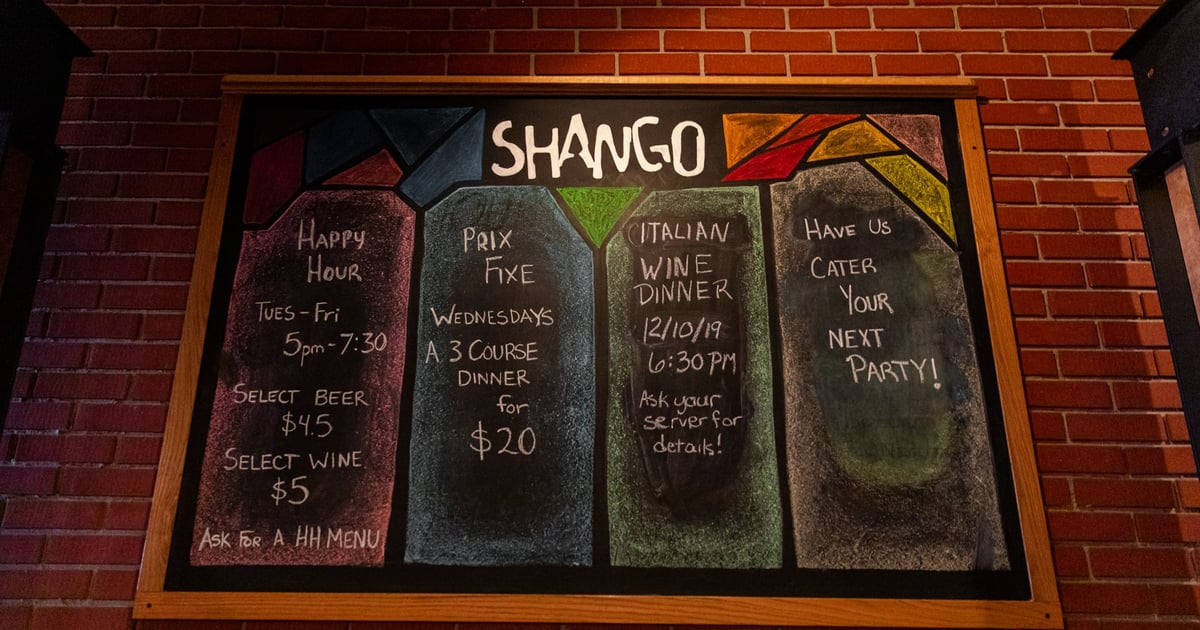 SHANGO
HAPPY
HOUR
TUES-Fri
5pm-7:30
SELECT BEER
$4.5
SELECT WINE
$5
ASK FOR A HH MENU
PRIX
FIXE
WEDNESDAYS
A 3 COURSE
DINNER
for
$20
ITALIAN
WINE
DINNER
12/10/19
6:30 PM
Ask your
server for
details!
HAVE US
CATER
YOUR
NEXT
PARTY!